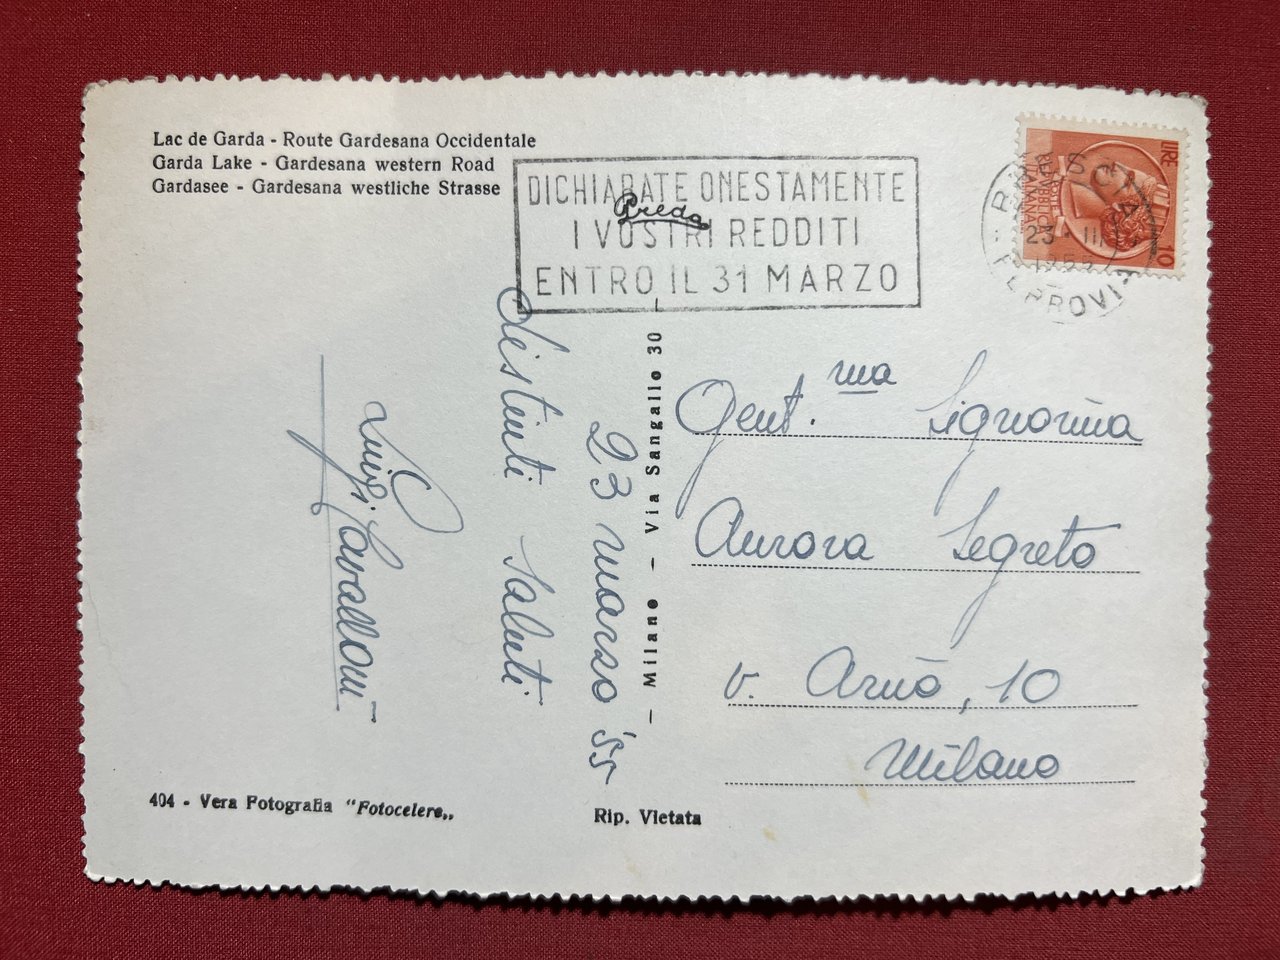 Lac de Garda - Route Gardesana Occidentale
Garda Lake - Gardesana western Road
Gardasee - Gardesana westliche Strasse
DICHIARATE ONESTAMENTE
I VOSTRI REDDITI
ENTRO IL 31 MARZO
Preda
LIRE 10
POSTE
REPVBBLICA
ITALIANA
BRESCIA
23 - III
1955
FERROVIA
Gent.ma Signorina
Aurora Segreto
v. Arnò, 10
Milano
23 marzo '55
distinti saluti
Luigi Cavalloni
- Milano - Via Sangallo 30 -
404 - Vera Fotografia "Fotocelere„
Rip. Vietata